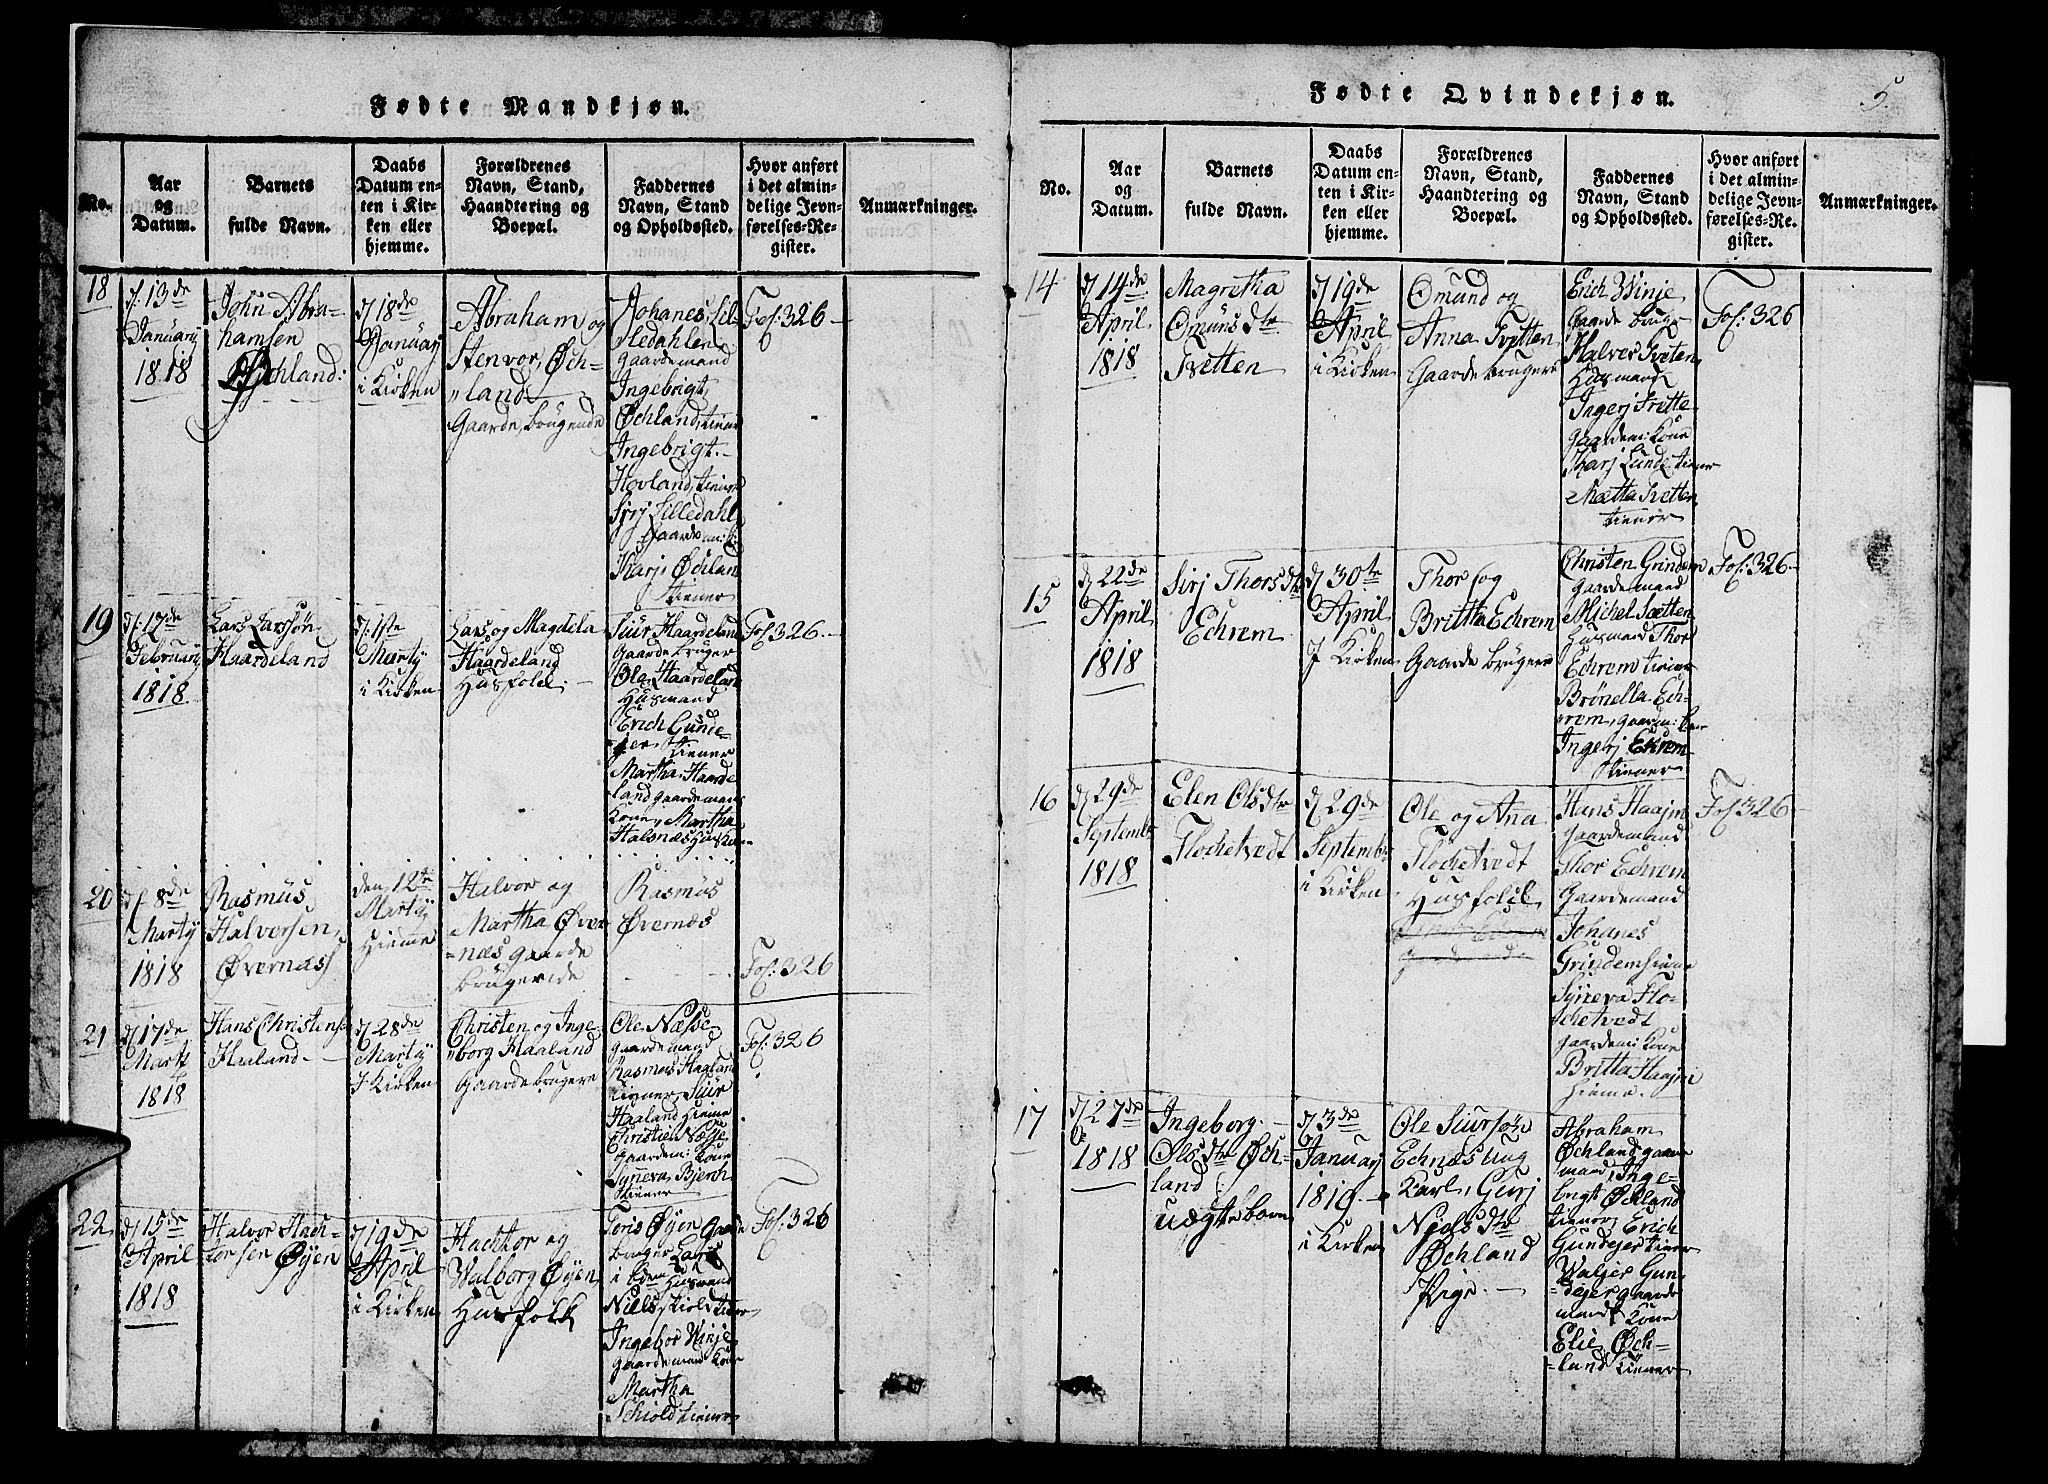 Fødte Mandkjøn.
No.
Aar
og
Datum.
Barnets
fulde Navn.
Daabs
Datum en-
ten i Kir-
ken eller
hjemme.
Forældrenes
Navn, Stand,
Haandtering og
Boepæl.
Faddernes
Navn, Stand
og Opholdssted.
Hvor anført
i det almin-
delige Jevn-
førelses-Re-
gister.
Anmærkninger.
18
d: 13de
Januarij
1818
John Abra-
hamsen
Øchland:
d 18de
Januarj
i Kirken
Abraham og
Stenvor Øch-
land
Gaarde brugende
Johanes Lil-
ledahlen
Gaardemand
Ingebrigt
Øchland, tiener
Ingebrigt
Hovland, tiener
Sirj Lilledahl
Gaardem: K:
Karj Øchland
tiener
Fol: 326
19
d: 17de
Februarij
1818
Lars Larsøn
Haardeland
d: 1ste
Martij
i Kirken
Lars og Magdela
Haardeland
Husfolk
Siur Haardeland
Gaarde bruger
Ola Haardeland
Husmand
Erich Gunde-
jer tiener
Martha Haarde
land gaardemans
Kone, Martha
Halsnæs
Fol: 326
20
d 8de
Martij
1818
Rasmus
Halversen
Øvernæss
den 12te
Martij
Hieme
Halvor og
Martha Øver
-næs gaarde
brugende
Rasmus
Øvernæs
Fol: 326
21
d 17de
Martj
1818
Hans Christens
Haaland
d 28de
Martij
I Kirken
Christen og Inge-
borg Haaland
Gaardebrugere
Ole Næsse
gaardemand
Rasmus Haaland
tiener, Siur
Haaland hieme
Christie Næsse
gaardem: Kone
Synneva Bjerch
tiener
Fol: 326
22
d 15de
April
1818
Halvor Hach-
torsen Øyen
d 19de
April
i Kirken
Hachtor og
Walborg Øyen
Husfolk
Toris Øyen Gaarde
bruger Lars
i
Husmand
Niels Skiold tiener
Ingebor Winje
gaardemand Kone
Martha
Schiold tiener
Fol: 326
Fødte Qvindekjøn.
5
No.
Aar
og
Datum.
Barnets
fulde Navn.
Daabs
Datum en-
ten i Kir-
ken eller
hjemme.
Forældrenes
Navn, Stand,
Haandtering og
Boepæl.
Faddernes
Navn, Stand
og Opholdssted.
Hvor anført
i det almin-
delige Jevn-
førelses-Re-
gister.
Anmærkninger.
14
d 14de
April
1818
Magretha
Omuns dtr
Tvetten
d 19de
April
i Kirken
Omund og
Anna Tvetten
Gaarde brugere
Erich Winje
Gaarde bruger
Halver Tveten
Husmand
Ingerj Tvette
gaardem: Kone
Karj Lunde tiener
Mætta Tvetten
tiener
Fol: 326
15
d 22de
April
1818
Sirj Thorsdtr
Echrem
d 30te
April
I Kirken
Thor og
Brittha Echrem
Gaarde brugere
Christen Grindem
gaardemand
Michel Sætten
Husmand Thor
Echrem tiener
Brønella Ech-
rem, gaardm: Kone
Ingerj Ekrem
tiener
Fol: 326
16
d 29de
Septembr
1818
Elen Olsdtr
Flochetvedt
d 29de
Septembr
i Kirken
Ole og Ana
Flochetvedt
Husfolk
Hans Haajm
gaardemand
Thor Echrem
Gaardemand
Johanes
Grindem hieme
Synneva Flo-
chetvedt
gaardem: Kone
Britta Haajm
hieme.
Fol: 326
17
d 27de
1818
Ingeborg
Olsdtr Øch-
land
uægte barn
d 3de
Januarj
1819
i Kirken
Ole Siursøn
Echnæs ung
Karl, Gurj
Niels dtr
Øchland
Pige
Abraham
Øchland gaarde
mand, Inge-
brigt Øchland
tiener, Erich
Gundejer tiener
Waljer Gun-
dejer gaarde
mand Kone
Elie Øch-
land tiener